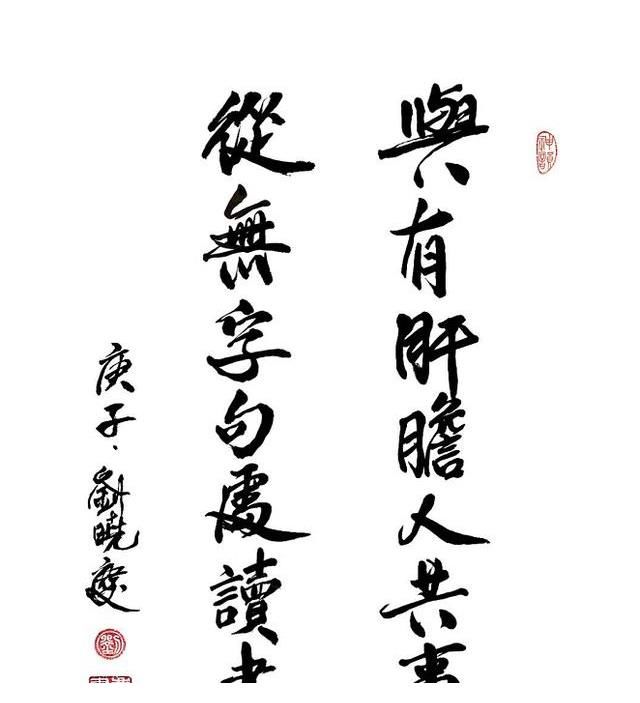 與有肝膽人共事
從無字句處讀書
庚子·劉曉慶
劉